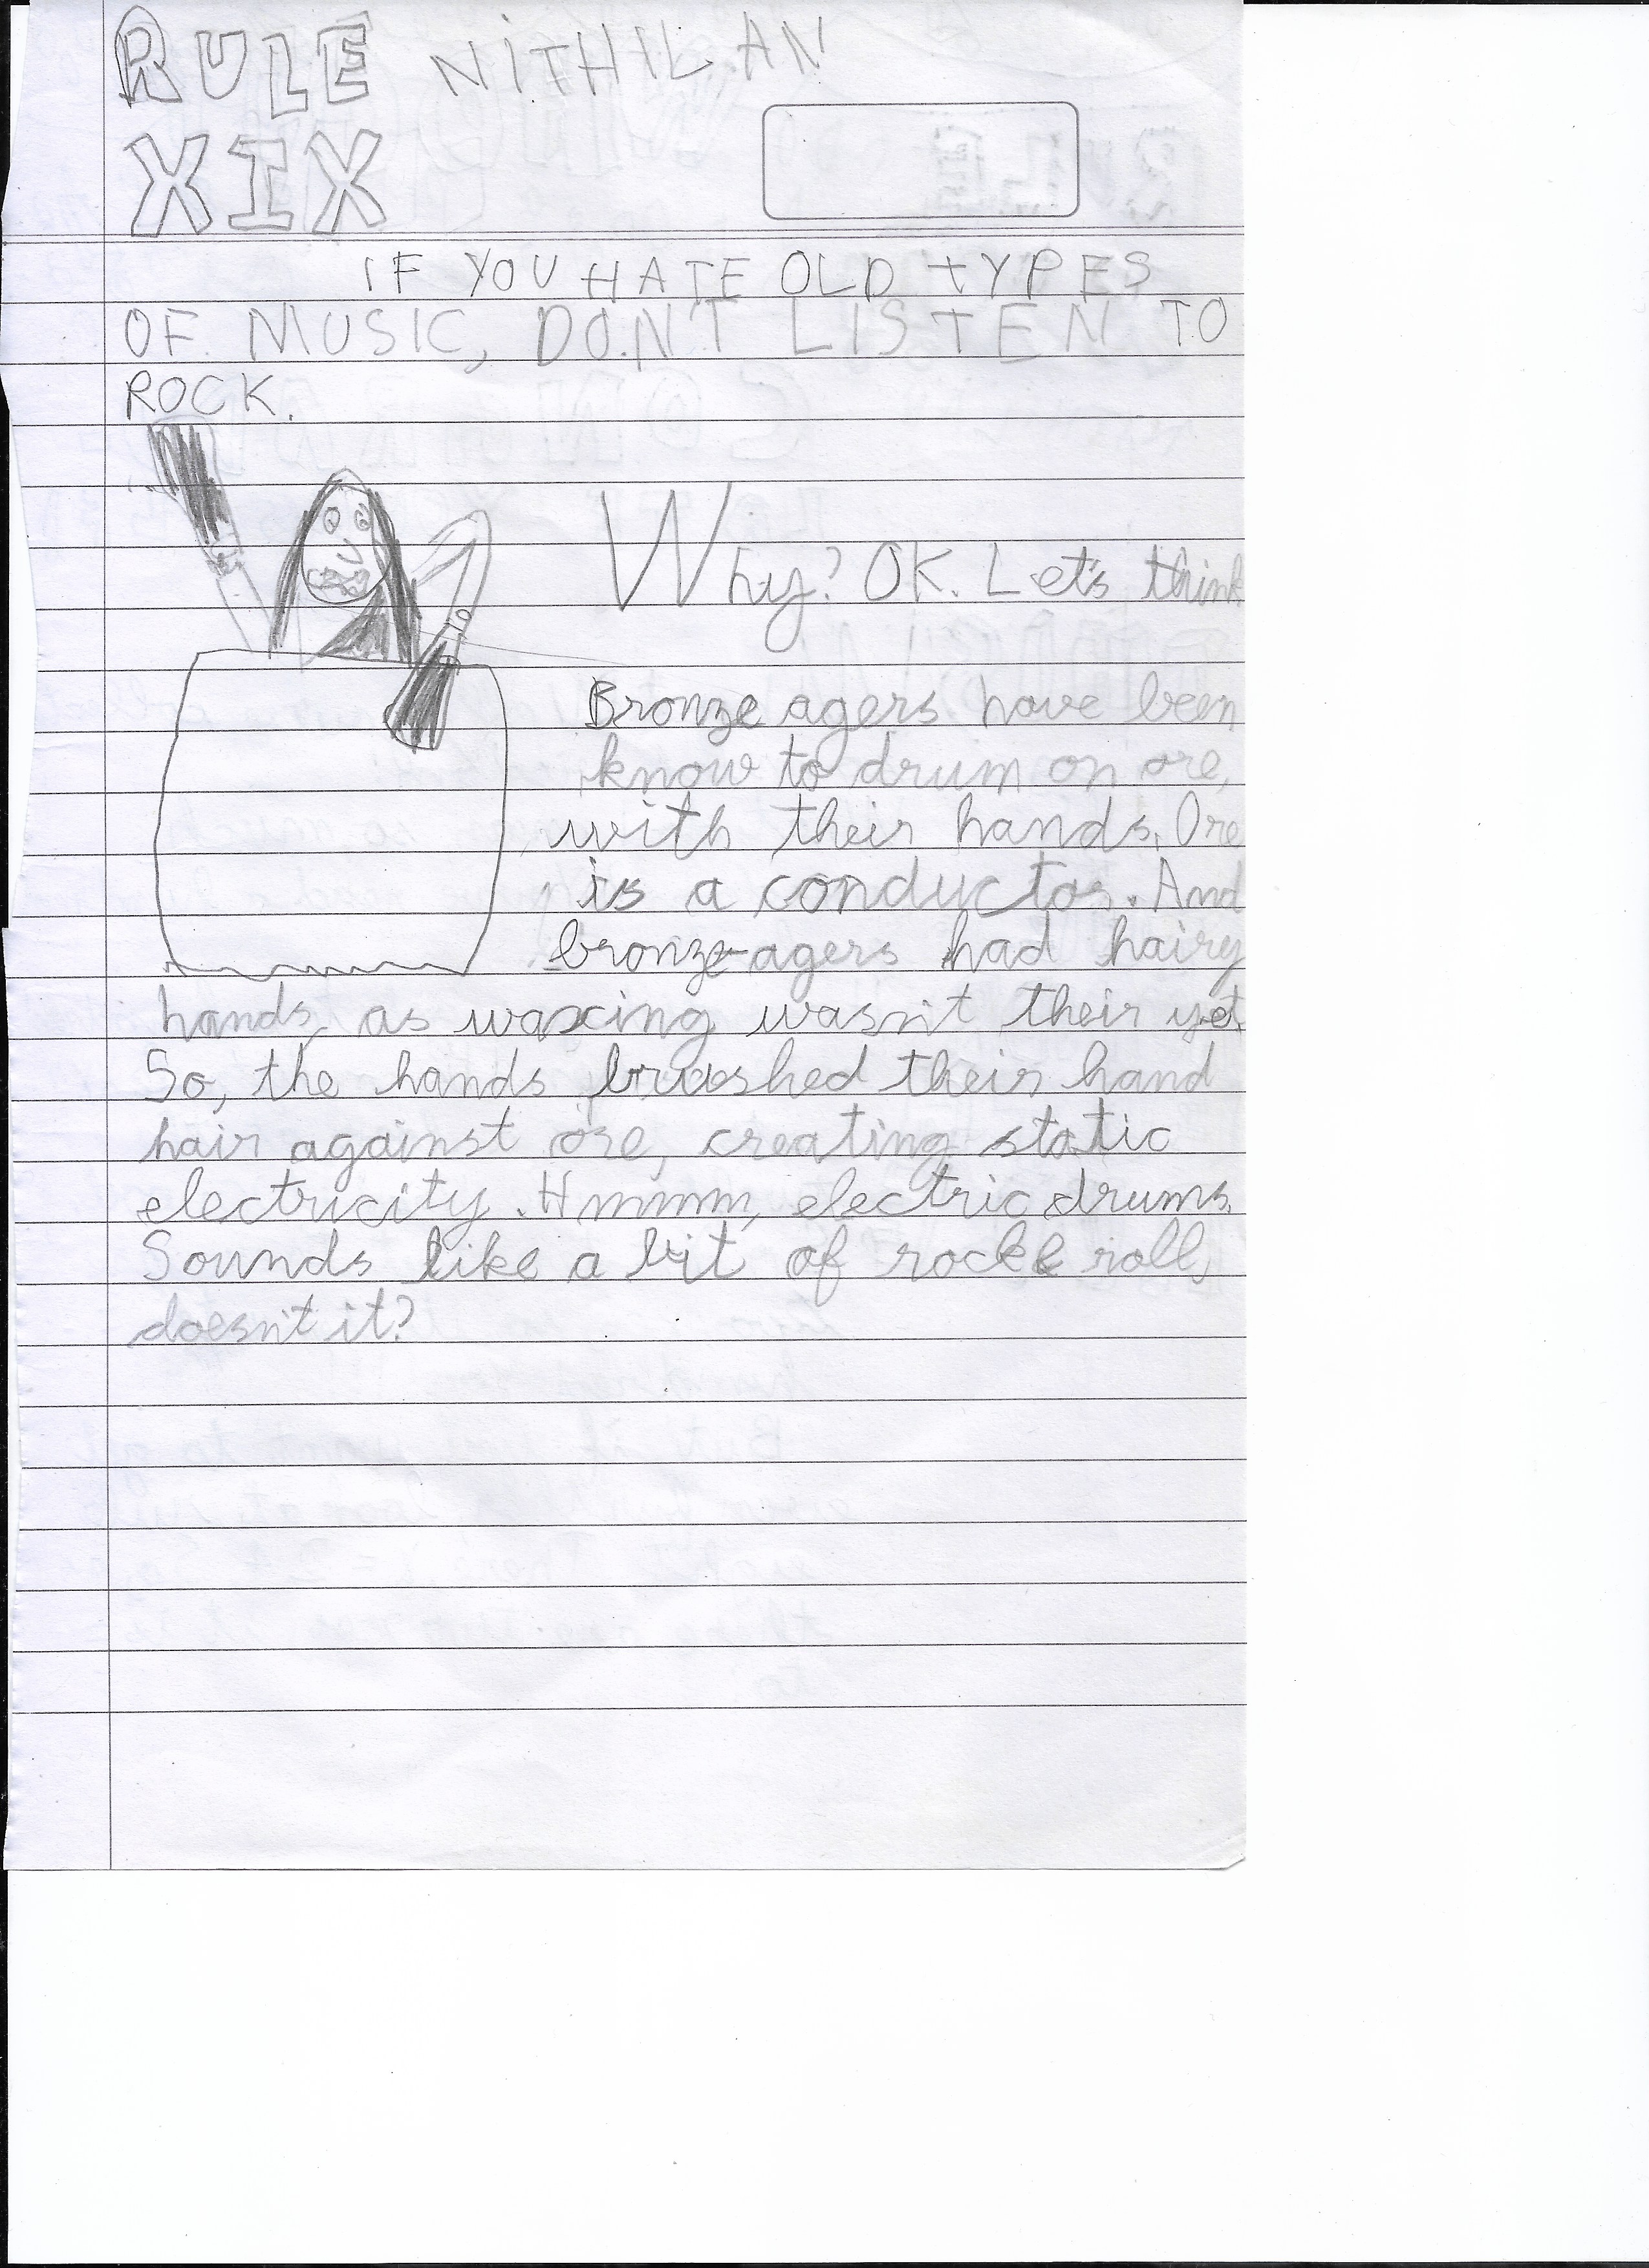 RULE NITHILAN
XIX
IF YOU HATE OLD TYPES
OF MUSIC, DON'T LISTEN TO
ROCK.
Why? OK. Let's think
Bronze agers have been
know to drum on ore,
with their hands. Ore
is a conductor. And
bronze-agers had hairy
hands, as waxing wasn't their yet.
So, the hands brushed their hand
hair against ore, creating static
electricity. Hmmmm, electric drums.
Sounds like a bit of rock & roll,
doesn't it?